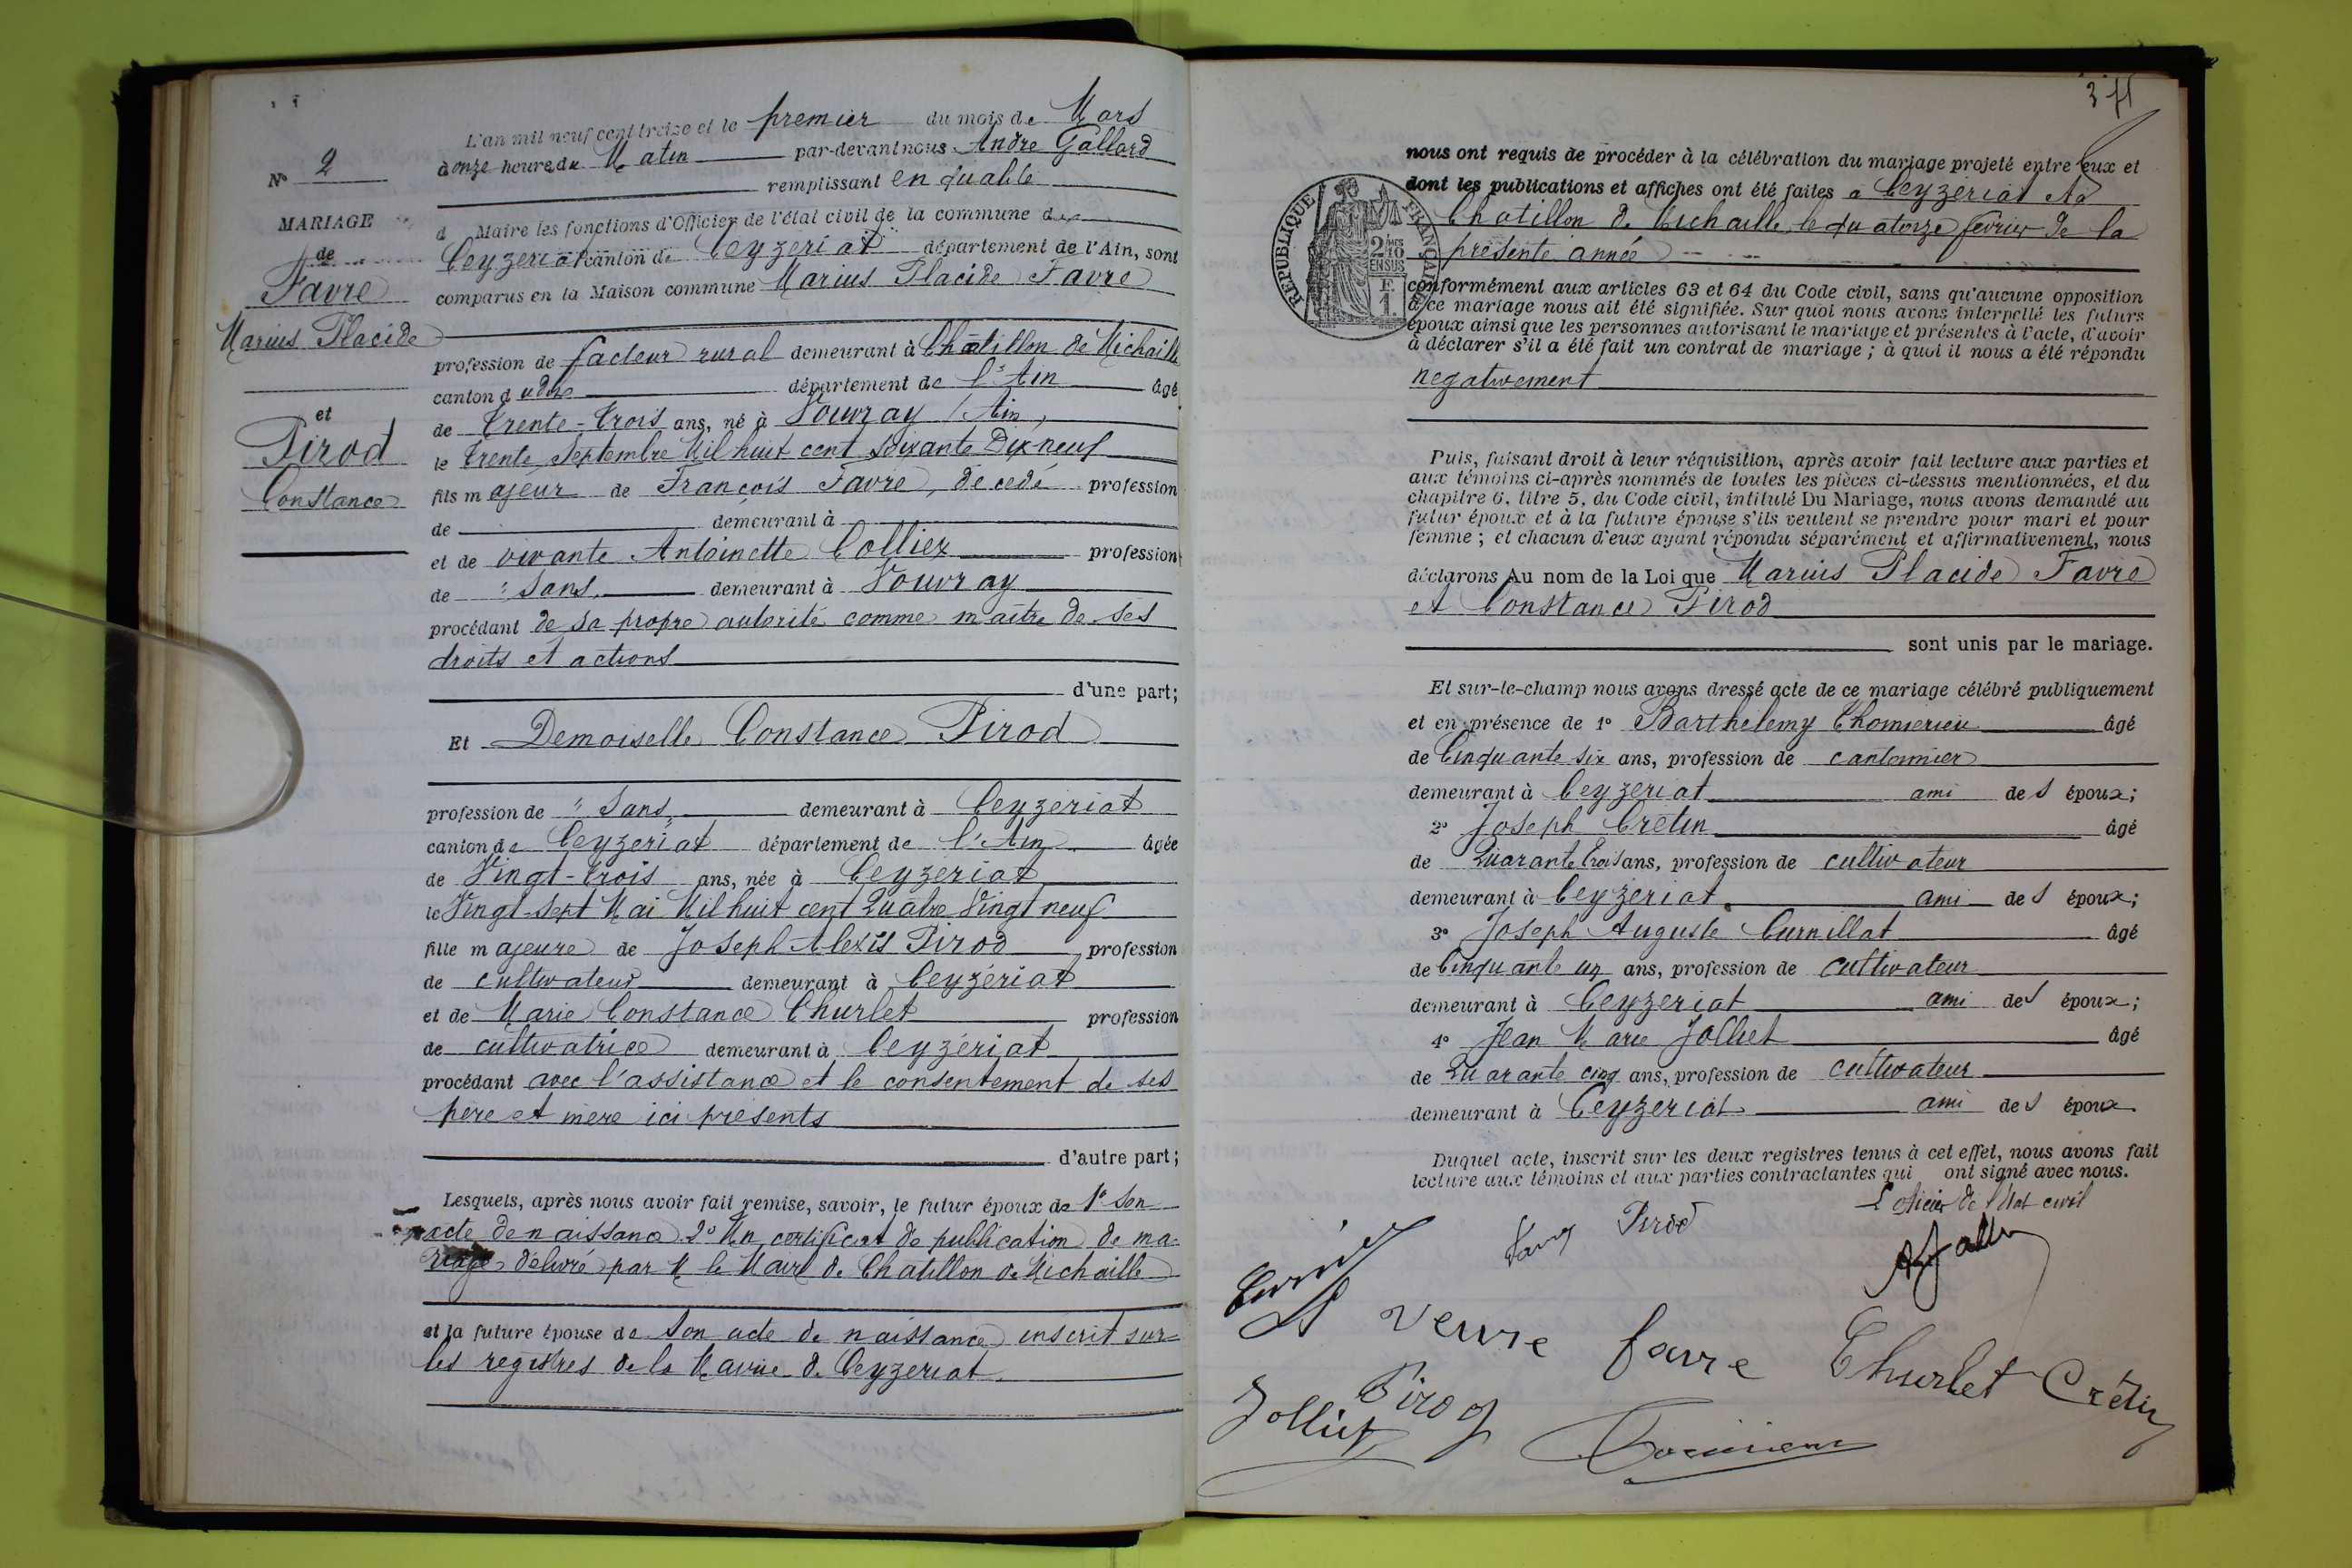 N° 2
MARIAGE
de
Favre
Marius Placide
et
Pirod
Constance
L'an mil neuf cent treize et le premier du mois de Mars
à onze heures du Matin par-devant nous André Gallard
remplissant en qualité
d Maire les fonctions d'Officier de l'état civil de la commune de
Ceyzeriat canton de Ceyzeriat département de l'Ain, sont
comparus en la Maison commune Marius Placide Favre
profession de facteur rural demeurant à Châtillon de Michaille
canton dudit département de l'Ain âgé
de trente-trois ans, né à Vouvray (Ain)
le trente Septembre Mil huit cent soixante Dix neuf
fils majeur de François Favre, décédé profession
de demeurant à
et de vivante Antoinette Colliex profession
de "Sans" demeurant à Vouvray
procédant de sa propre autorité comme maître de ses
droits et actions
d'une part;
Et Demoiselle Constance Pirod
profession de "Sans" demeurant à Ceyzériat
canton de Ceyzeriat département de l'Ain âgée
de Vingt-trois ans, née à Ceyzériat
le Vingt-sept Mai Mil huit cent Quatre Vingt neuf
fille majeure de Joseph Alexis Pirod profession
de cultivateur demeurant à Ceyzériat
et de Marie Constance Churlet profession
de cultivatrice demeurant à Ceyzériat
procédant avec l'assistance et le consentement de ses
père et mère ici présents
d'autre part;
Lesquels, après nous avoir fait remise, savoir, le futur époux de 1° Son
acte de naissance 2° Un certificat de publication de ma-
riage délivré par M le Maire de Chatillon de Michaille
et la future épouse de Son acte de naissance inscrit sur
les registres de la Mairie de Ceyzeriat.
nous ont requis de procéder à la célébration du mariage projeté entre eux et
dont les publications et affiches ont été faites à Ceyzeriat et à
Chatillon de Michaille le quatorze février de la
présente année
RÉPUBLIQUE FRANÇAISE
2/10
EN SUS
F.
1.
conformément aux articles 63 et 64 du Code civil, sans qu'aucune opposition
à ce mariage nous ait été signifiée. Sur quoi nous avons interpellé les futurs
époux ainsi que les personnes autorisant le mariage et présentes à l'acte, d'avoir
à déclarer s'il a été fait un contrat de mariage; à quoi il nous a été répondu
negativement
Puis, faisant droit à leur réquisition, après avoir fait lecture aux parties et
aux témoins ci-après nommés de toutes les pièces ci-dessus mentionnées, et du
chapitre 6, titre 5, du Code civil, intitulé Du Mariage, nous avons demandé au
futur époux et à la future épouse s'ils veulent se prendre pour mari et pour
femme; et chacun d'eux ayant répondu séparément et affirmativement, nous
déclarons Au nom de la Loi que Marius Placide Favre
et Constance Pirod
sont unis par le mariage.
Et sur-le-champ nous avons dressé acte de ce mariage célébré publiquement
et en présence de 1° Barthelemy âgé
de Cinquante six ans, profession de cantonnier
demeurant à Ceyzeriat ami des époux;
2° Joseph Cretin âgé
de Quarante trois ans, profession de cultivateur
demeurant à Ceyzeriat ami des époux;
3° Joseph Auguste Curnillat âgé
de Cinquante un ans, profession de cultivateur
demeurant à Ceyzeriat ami des époux;
4° Jean Marie Jolliet âgé
de Quarante cinq ans, profession de cultivateur
demeurant à Ceyzeriat ami des époux.
Duquel acte, inscrit sur les deux registres tenus à cet effet, nous avons fait
lecture aux témoins et aux parties contractantes qui ont signé avec nous.
L'officier de l'Etat civil
Pirod
veuve favre Churlet Crétin
Jolliet Pirod